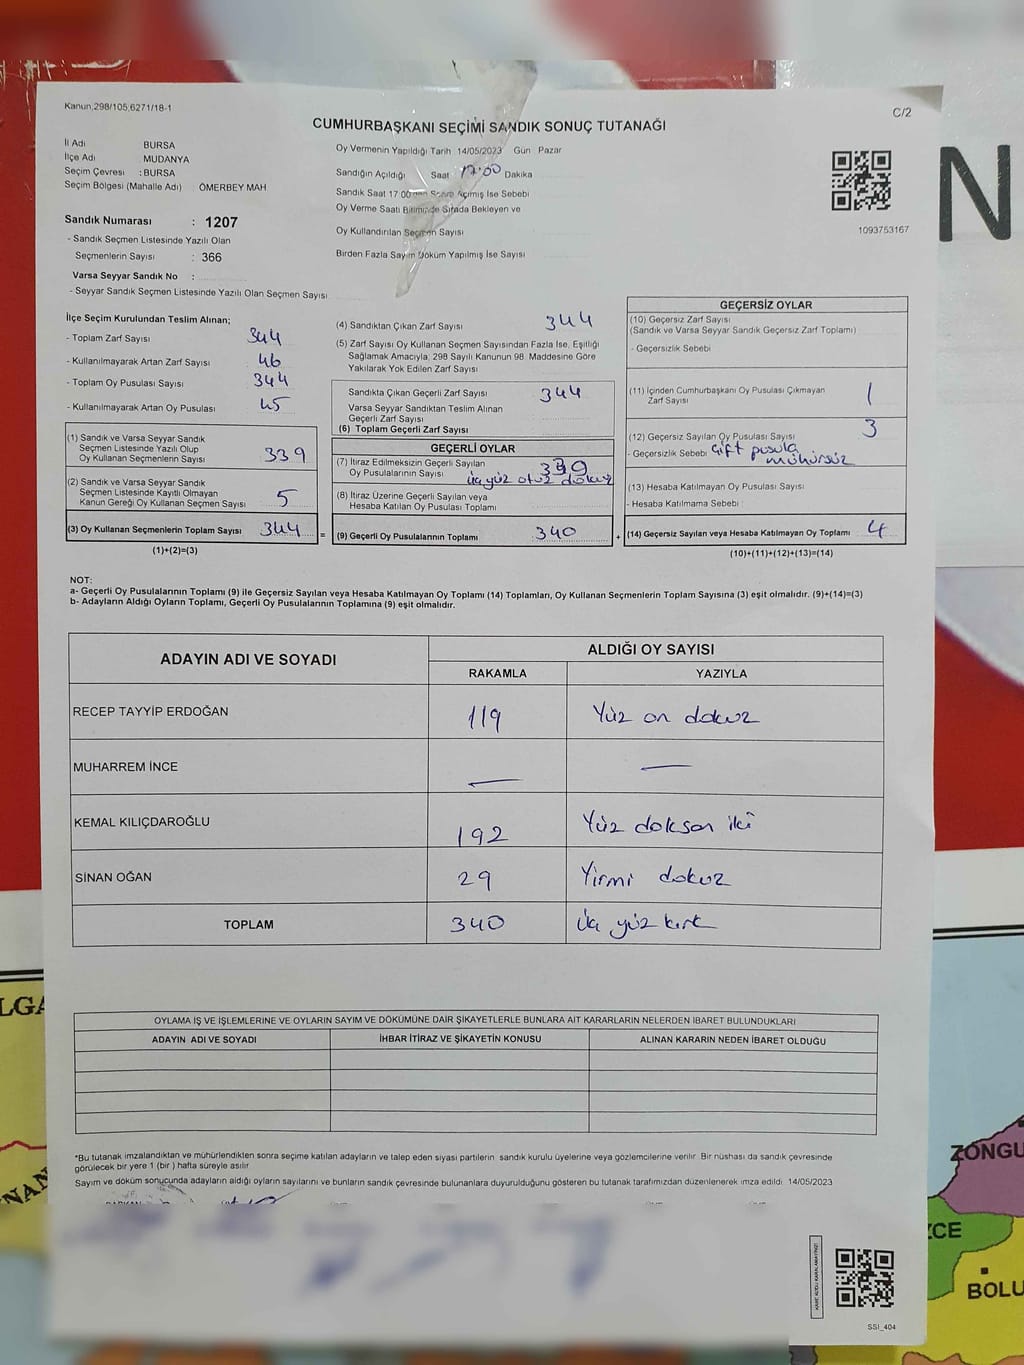 Kanun:298/105,6271/18-1
C/2
CUMHURBAŞKANI SEÇİMİ SANDIK SONUÇ TUTANAĞI
İl Adı BURSA
İlçe Adı MUDANYA
Seçim Çevresi : BURSA
Seçim Bölgesi (Mahalle Adı) ÖMERBEY MAH
Sandık Numarası : 1207
- Sandık Seçmen Listesinde Yazılı Olan
Seçmenlerin Sayısı : 366
Varsa Seyyar Sandık No :
- Seyyar Sandık Seçmen Listesinde Yazılı Olan Seçmen Sayısı
Oy Vermenin Yapıldığı Tarih 14/05/2023 Gün Pazar
Sandığın Açıldığı Saat 17:00 Dakika
Sandık Saat 17:00'den Sonra Açılmış İse Sebebi
Oy Verme Saati Bitiminde Sırada Bekleyen ve
Oy Kullandırılan Seçmen Sayısı
Birden Fazla Sayım Döküm Yapılmış İse Sayısı
1093753167
N
İlçe Seçim Kurulundan Teslim Alınan;
- Toplam Zarf Sayısı 344
- Kullanılmayarak Artan Zarf Sayısı 46
- Toplam Oy Pusulası Sayısı 344
- Kullanılmayarak Artan Oy Pusulası 45
(1) Sandık ve Varsa Seyyar Sandık
Seçmen Listesinde Yazılı Olup
Oy Kullanan Seçmenlerin Sayısı 339
(2) Sandık ve Varsa Seyyar Sandık
Seçmen Listesinde Kayıtlı Olmayan
Kanun Gereği Oy Kullanan Seçmen Sayısı 5
(3) Oy Kullanan Seçmenlerin Toplam Sayısı 344 =
(1)+(2)=(3)
(4) Sandıktan Çıkan Zarf Sayısı 344
(5) Zarf Sayısı Oy Kullanan Seçmen Sayısından Fazla İse, Eşitliği
Sağlamak Amacıyla, 298 Sayılı Kanunun 98. Maddesine Göre
Yakılarak Yok Edilen Zarf Sayısı
Sandıkta Çıkan Geçerli Zarf Sayısı 344
Varsa Seyyar Sandıktan Teslim Alınan
Geçerli Zarf Sayısı
(6) Toplam Geçerli Zarf Sayısı
GEÇERLİ OYLAR
(7) İtiraz Edilmeksizin Geçerli Sayılan
Oy Pusulalarının Sayısı 339
üç yüz otuz dokuz
(8) İtiraz Üzerine Geçerli Sayılan veya
Hesaba Katılan Oy Pusulaları Toplamı
(9) Geçerli Oy Pusulalarının Toplamı 340 +
GEÇERSİZ OYLAR
(10) Geçersiz Zarf Sayısı
(Sandık ve Varsa Seyyar Sandık Geçersiz Zarf Toplamı)
- Geçersizlik Sebebi
(11) İçinden Cumhurbaşkanı Oy Pusulası Çıkmayan
Zarf Sayısı 1
(12) Geçersiz Sayılan Oy Pusulası Sayısı 3
- Geçersizlik Sebebi Çift pusula
mühürsüz
(13) Hesaba Katılmayan Oy Pusulası Sayısı
- Hesaba Katılmama Sebebi
(14) Geçersiz Sayılan veya Hesaba Katılmayan Oy Toplamı 4
(10)+(11)+(12)+(13)=(14)
NOT:
a- Geçerli Oy Pusulalarının Toplamı (9) ile Geçersiz Sayılan veya Hesaba Katılmayan Oy Toplamı (14) Toplamları, Oy Kullanan Seçmenlerin Toplam Sayısına (3) eşit olmalıdır. (9)+(14)=(3)
b- Adayların Aldığı Oyların Toplamı, Geçerli Oy Pusulalarının Toplamına (9) eşit olmalıdır.
ADAYIN ADI VE SOYADI
ALDIĞI OY SAYISI
RAKAMLA YAZIYLA
RECEP TAYYİP ERDOĞAN 119 Yüz on dokuz
MUHARREM İNCE — —
KEMAL KILIÇDAROĞLU 192 Yüz doksan iki
SİNAN OĞAN 29 Yirmi dokuz
TOPLAM 340 Üç yüz kırk
OYLAMA İŞ VE İŞLEMLERİNE VE OYLARIN SAYIM VE DÖKÜMÜNE DAİR ŞİKAYETLERLE BUNLARA AİT KARARLARIN NELERDEN İBARET BULUNDUKLARI
ADAYIN ADI VE SOYADI İHBAR İTİRAZ VE ŞİKAYETİN KONUSU ALINAN KARARIN NEDEN İBARET OLDUĞU
*Bu tutanak imzalandıktan ve mühürlendikten sonra seçime katılan adayların ve talep eden siyasi partilerin sandık kurulu üyelerine veya gözlemcilerine verilir. Bir nüshası da sandık çevresinde
görülecek bir yere 1 (bir ) hafta süreyle asılır.
Sayım ve döküm sonucunda adayların aldığı oyların sayılarını ve bunların sandık çevresinde bulunanlara duyurulduğunu gösteren bu tutanak tarafımızdan düzenlenerek imza edildi. 14/05/2023
SSI_404
LGA
NAN
ZONGU
CE
BOLU